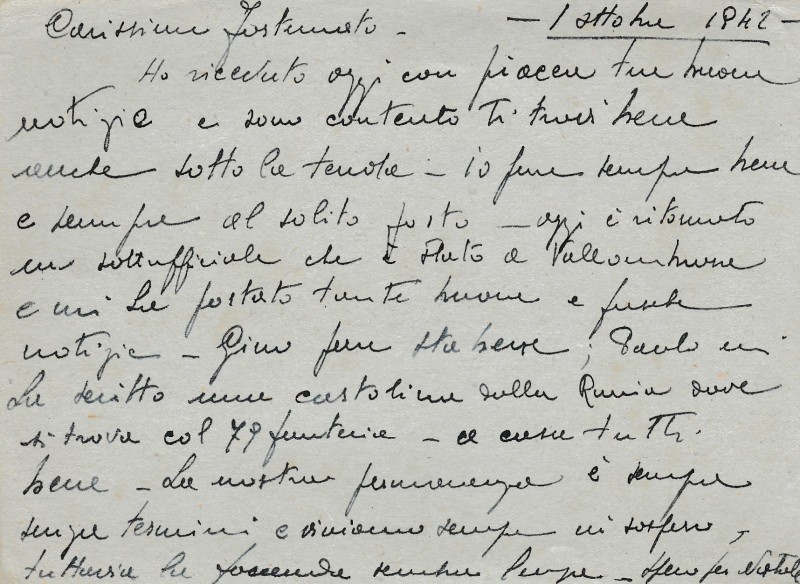 Carissimo Fortunato - - 1 ottobre 1942 -
Ho ricevuto oggi con piacere tue buone
notizie e sono contento ti trovi bene
anche sotto la tenda - io pure sempre bene
e sempre al solito posto - oggi è ritornato
un sottufficiale che è stato a Vallombrosa
e mi ha portato tante buone e fresche
notizie - Gino pure sta bene; Paolo mi
ha scritto una cartolina dalla Russia dove
si trova col 79 fanteria - a casa tutti
bene - La nostra permanenza è sempre
senza termini e viviamo sempre in sospeso,
tuttavia la faccenda sembra lunga - spero per Natale